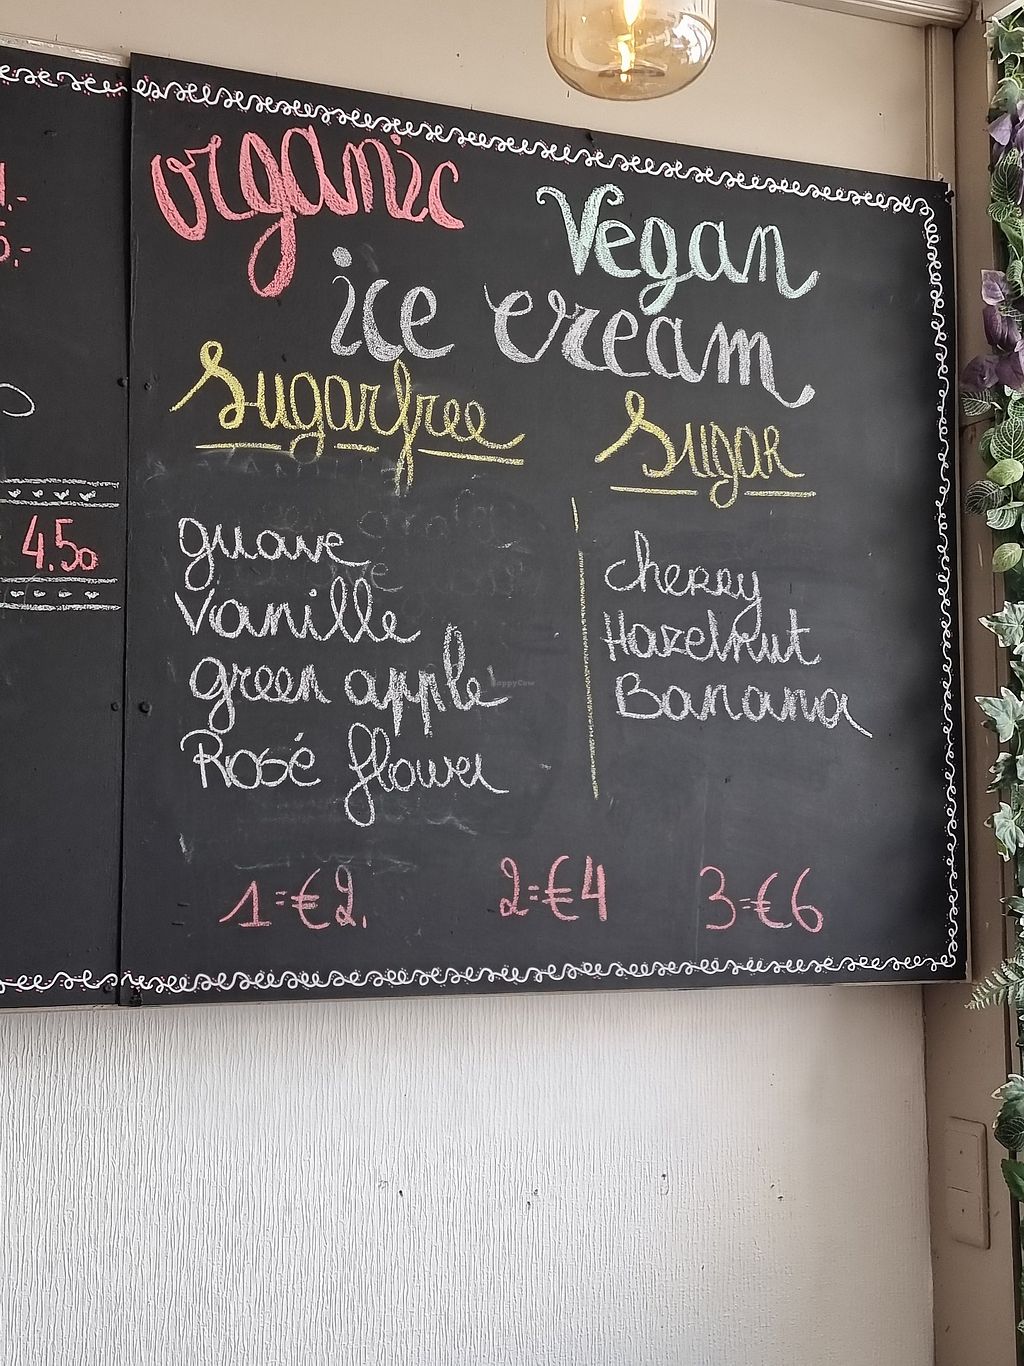 organic
Vegan
ice cream
Sugarfree
guave
Vanille
green apple
Rosé flower
Sugar
cherry
Hazelnut
Banana
1=€2.
2=€4
3=€6
4.50
HappyCow